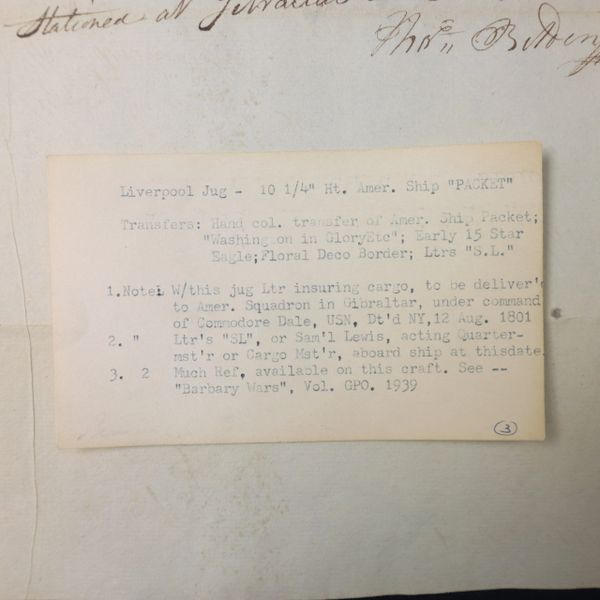 Stationed at Gibraltar
Thos.
Liverpool Jug - 10 1/4" Ht. Amer. Ship "PACKET"
Transfers: Hand col. transfer of Amer. Ship Packet;
"Washington in GloryEtc"; Early 15 Star
Eagle;Floral Deco Border; Ltrs "S.L."
1.NoteL W/this jug Ltr insuring cargo, to be deliver'd
to Amer. Squadron in Gibraltar, under command
of Commodore Dale, USN, Dt'd NY,12 Aug. 1801
2. " Ltr's "SL", or Sam'l Lewis, acting Quarter-
mst'r or Cargo Mst'r, aboard ship at thisdate.
3. 2 Much Ref, available on this craft. See --
"Barbary Wars", Vol. GPO. 1939
3